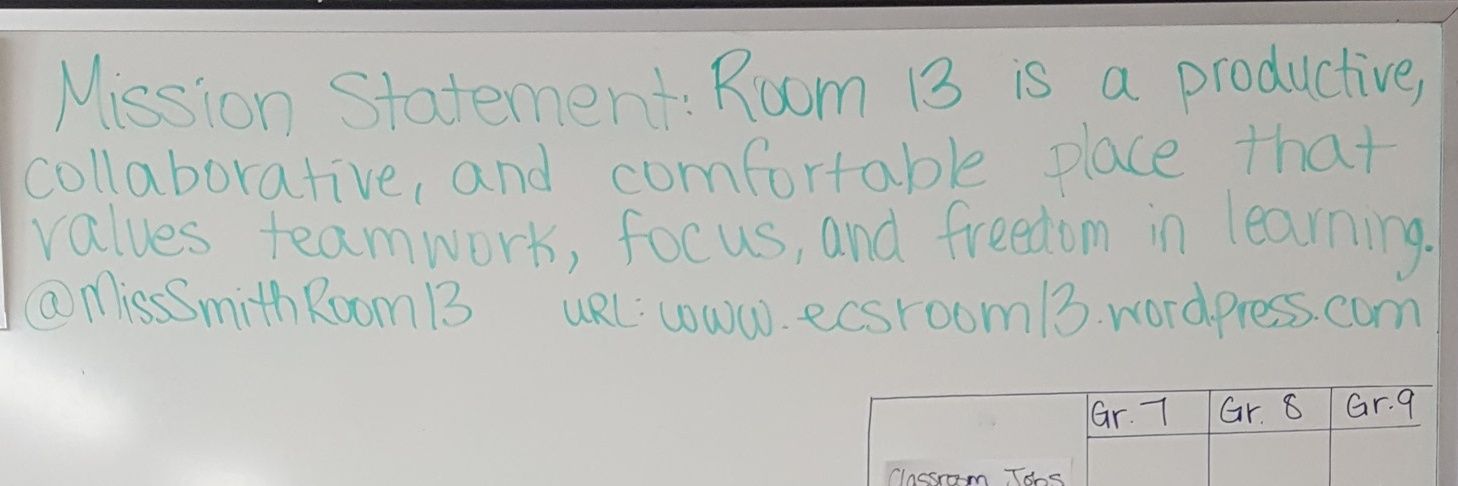 Mission Statement: Room 13 is a productive,
collaborative, and comfortable place that
values teamwork, focus, and freedom in learning.
@MissSmithRoom13 URL: www.ecsroom13.wordpress.com
Gr. 7 Gr. 8 Gr. 9
Classroom Jobs